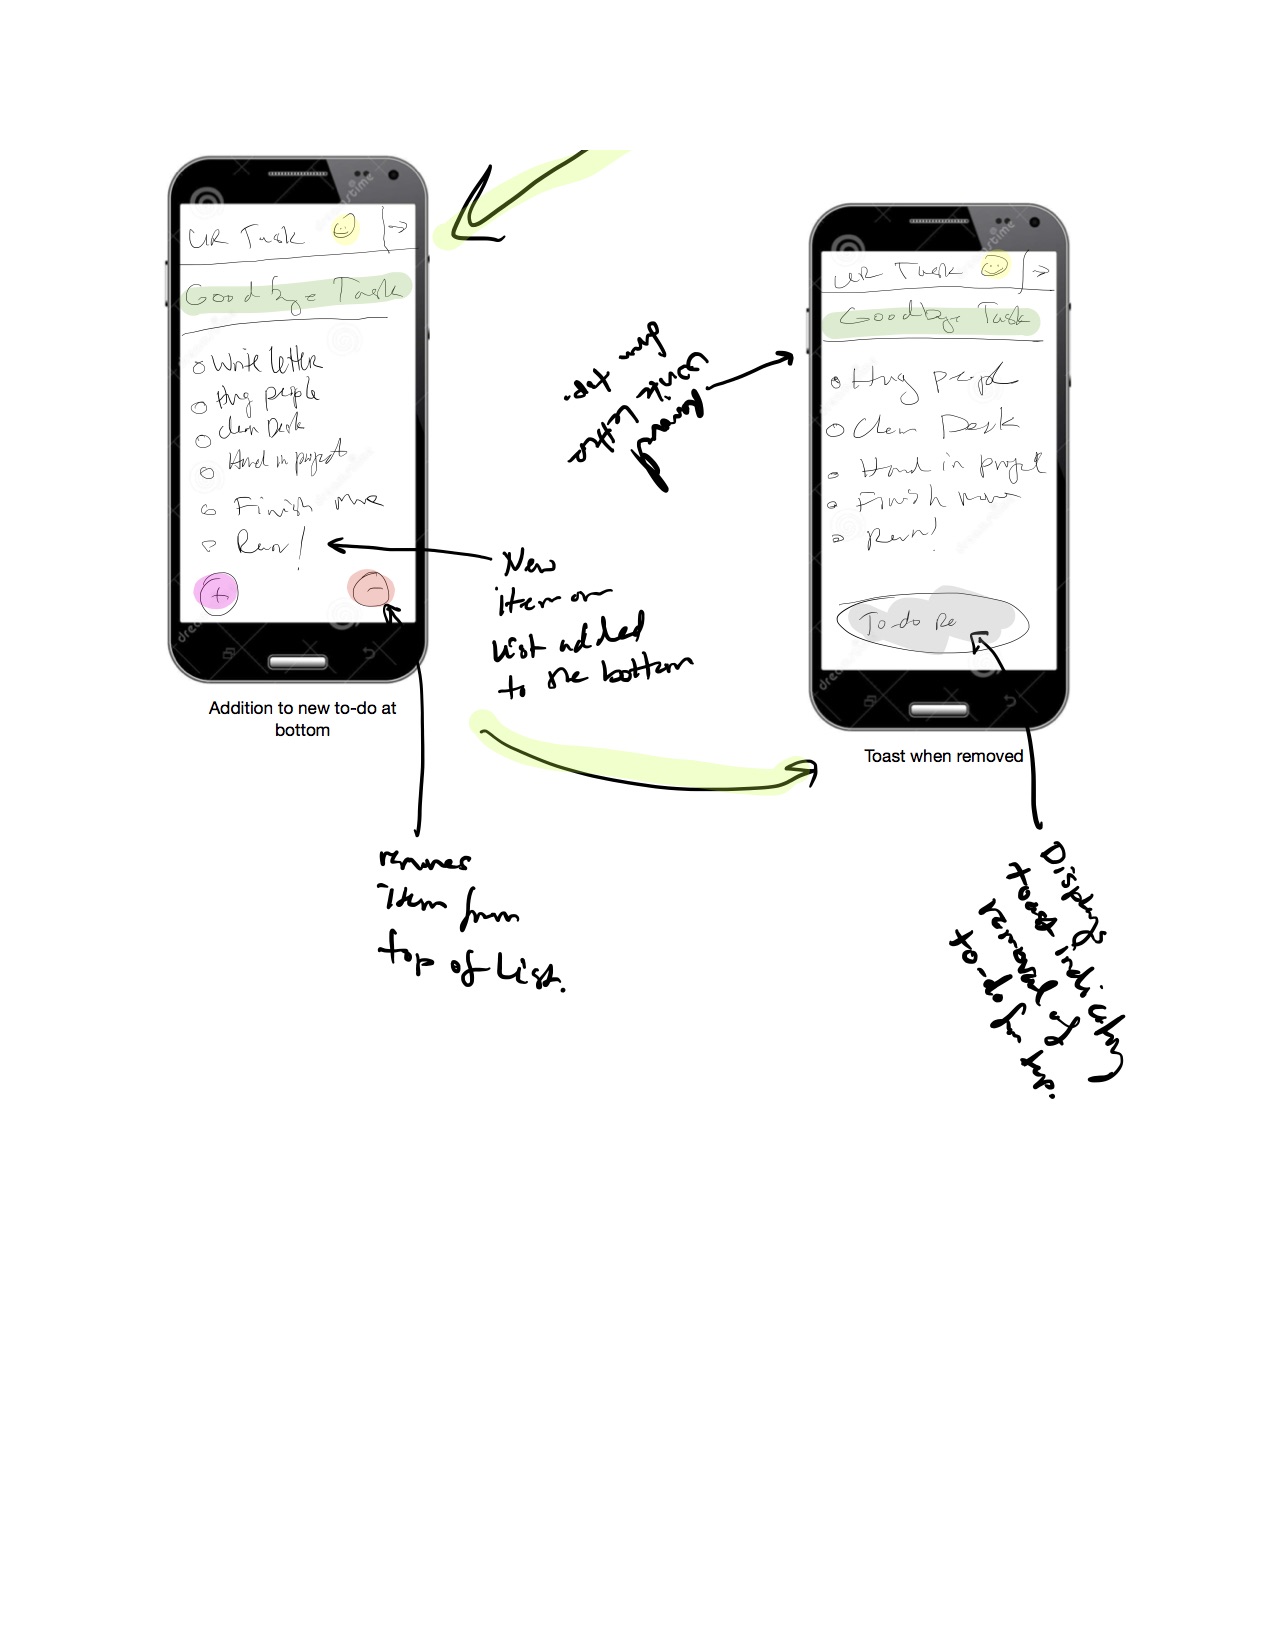 UR Task
Goodbye Task
Write letter
Hug people
Clean Desk
Hand in project
Finish
Run!
+
-
Addition to new to-do at
bottom
New
item on
list added
to the bottom
removes
item from
top of list.
Removed
write letter
from top.
UR Task
Goodbye Task
Hug people
Clean Desk
Hand in project
Finish
Run!
To-do Re
Toast when removed
Displays
toast indicating
removal of
to-do from top.
dreamstime